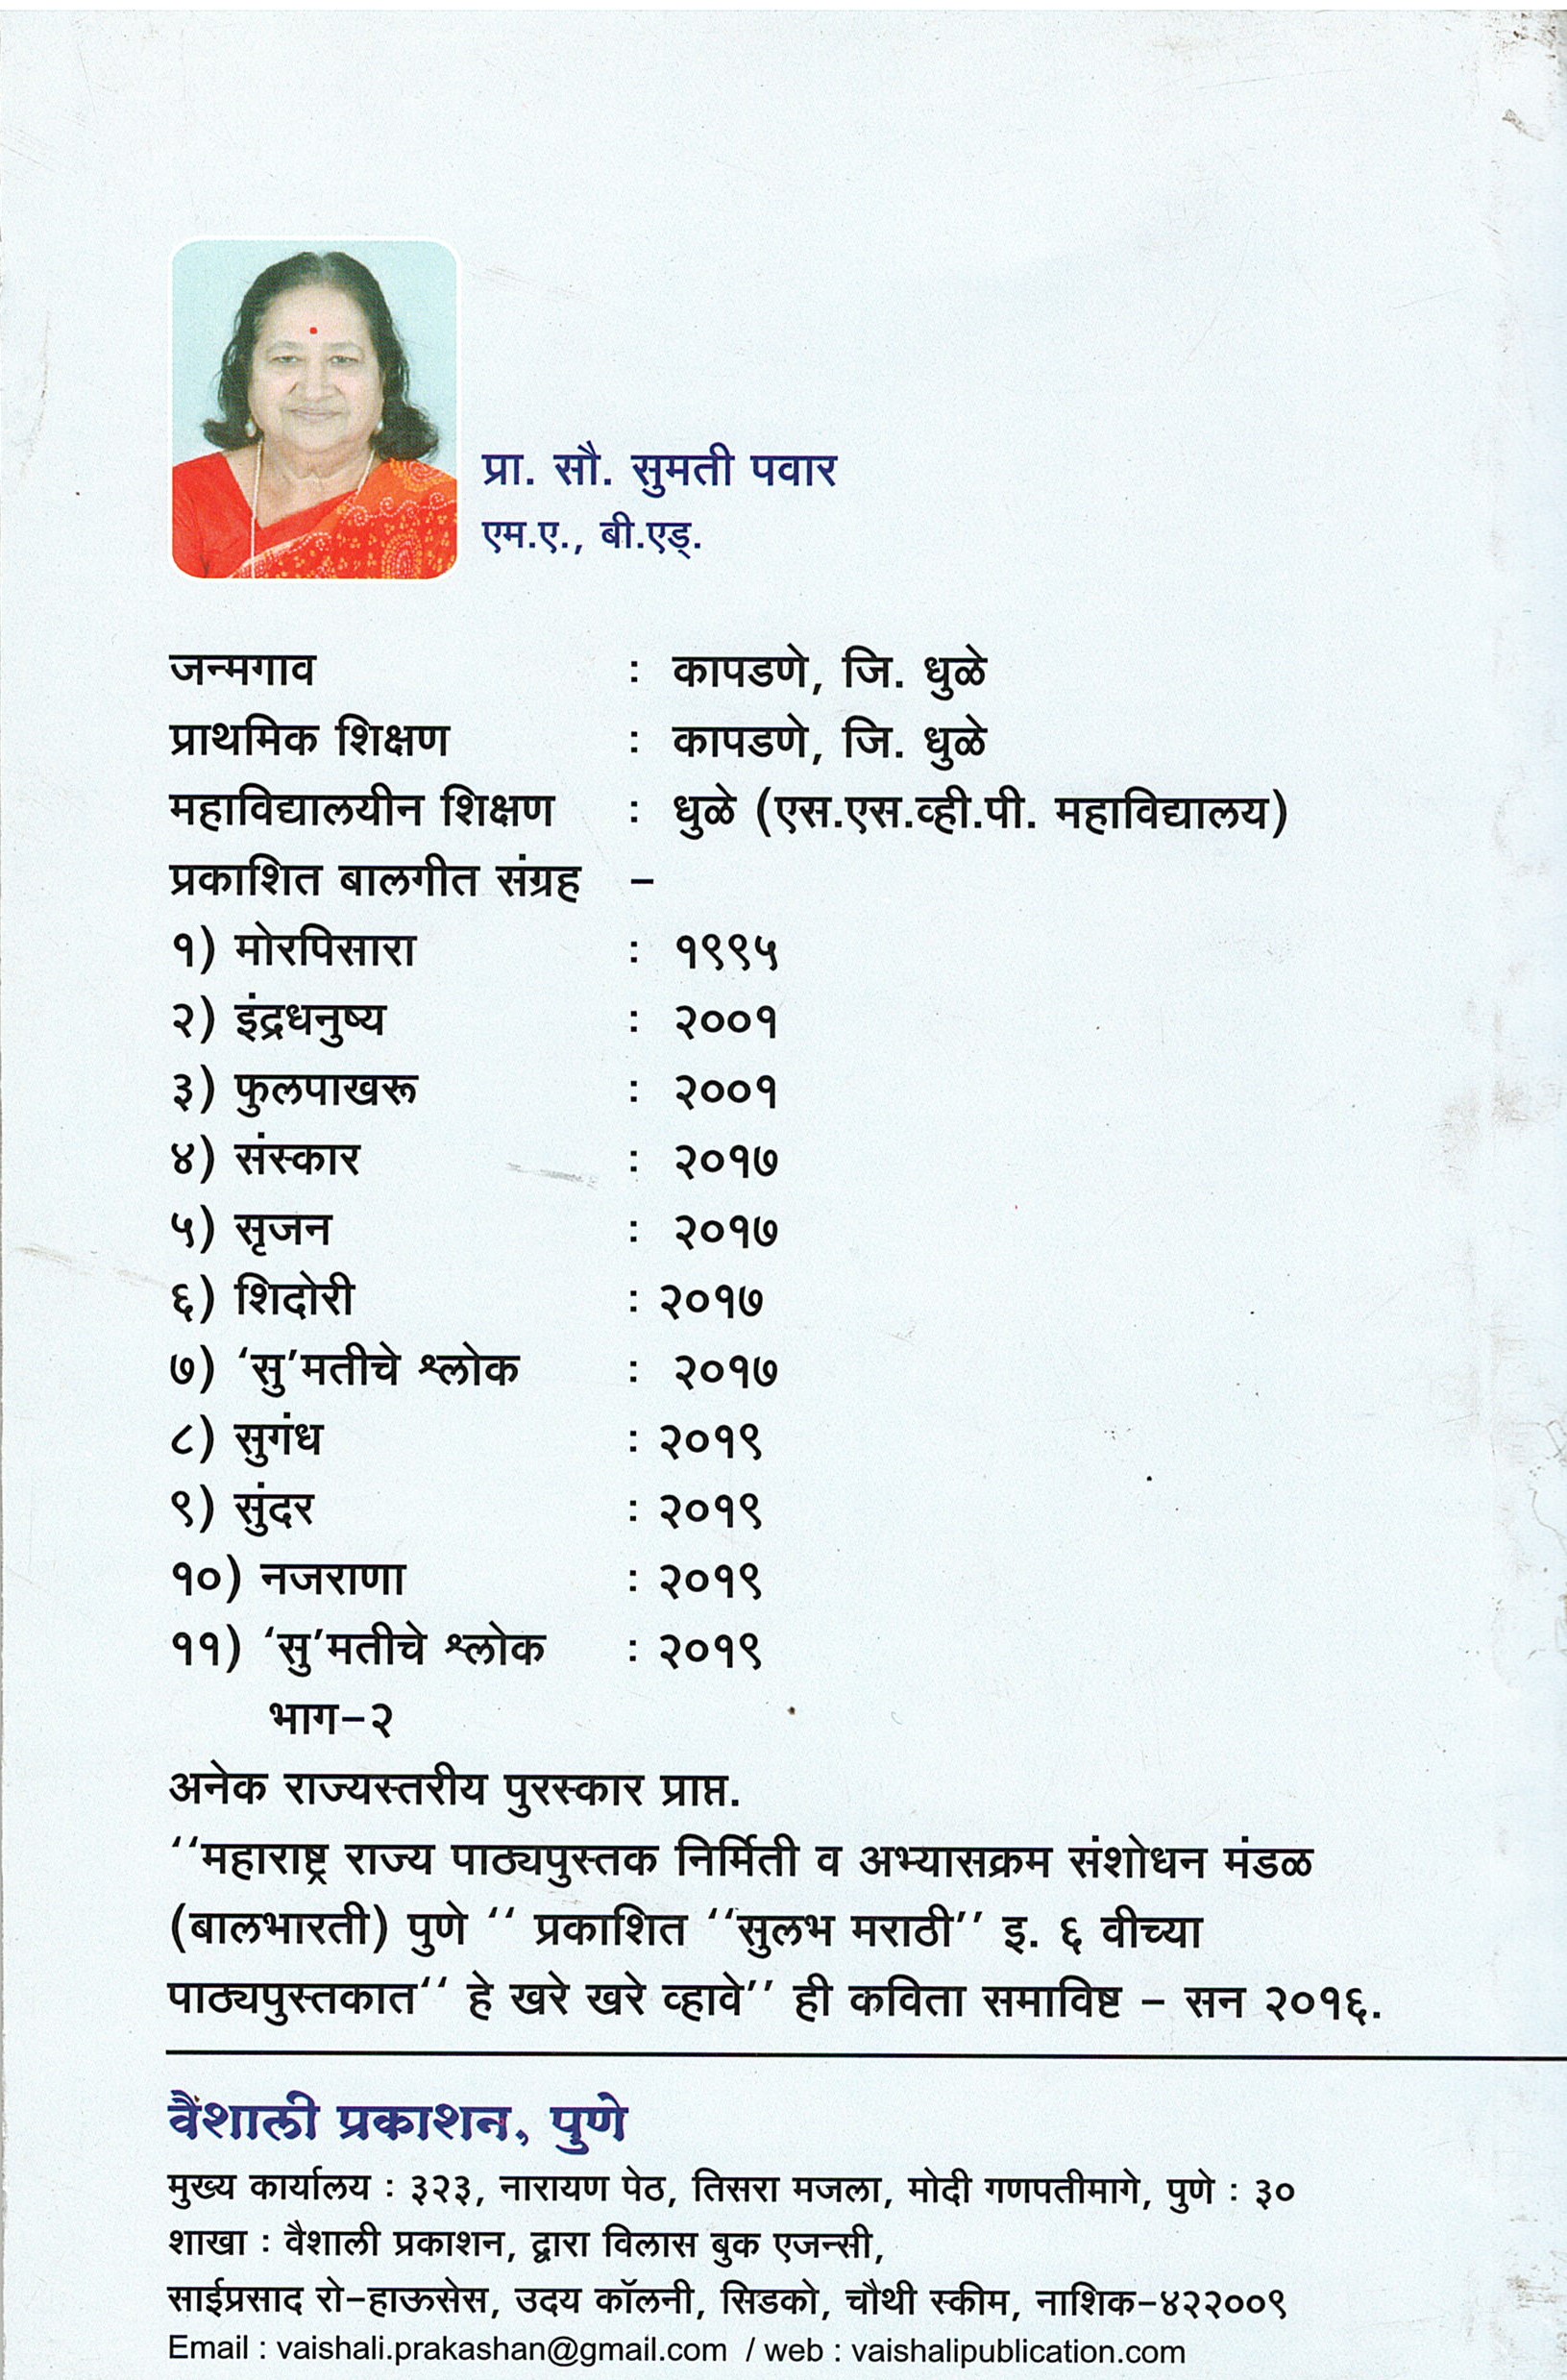 प्रा. सौ. सुमती पवार
एम.ए., बी.एड्.
जन्मगाव : कापडणे, जि. धुळे
प्राथमिक शिक्षण : कापडणे, जि. धुळे
महाविद्यालयीन शिक्षण : धुळे (एस.एस.व्ही.पी. महाविद्यालय)
प्रकाशित बालगीत संग्रह –
१) मोरपिसारा : १९९५
२) इंद्रधनुष्य : २००१
३) फुलपाखरू : २००१
४) संस्कार : २०१७
५) सृजन : २०१७
६) शिदोरी : २०१७
७) ‘सु’मतीचे श्लोक : २०१७
८) सुगंध : २०१९
९) सुंदर : २०१९
१०) नजराणा : २०१९
११) ‘सु’मतीचे श्लोक : २०१९
भाग–२
अनेक राज्यस्तरीय पुरस्कार प्राप्त.
‘‘महाराष्ट्र राज्य पाठ्यपुस्तक निर्मिती व अभ्यासक्रम संशोधन मंडळ
(बालभारती) पुणे ‘‘ प्रकाशित ‘‘सुलभ मराठी’’ इ. ६ वीच्या
पाठ्यपुस्तकात‘‘ हे खरे खरे व्हावे’’ ही कविता समाविष्ट – सन २०१६.
वैशाली प्रकाशन, पुणे
मुख्य कार्यालय : ३२३, नारायण पेठ, तिसरा मजला, मोदी गणपतीमागे, पुणे : ३०
शाखा : वैशाली प्रकाशन, द्वारा विलास बुक एजन्सी,
साईप्रसाद रो–हाऊसेस, उदय कॉलनी, सिडको, चौथी स्कीम, नाशिक–४२२००९
Email : vaishali.prakashan@gmail.com / web : vaishalipublication.com